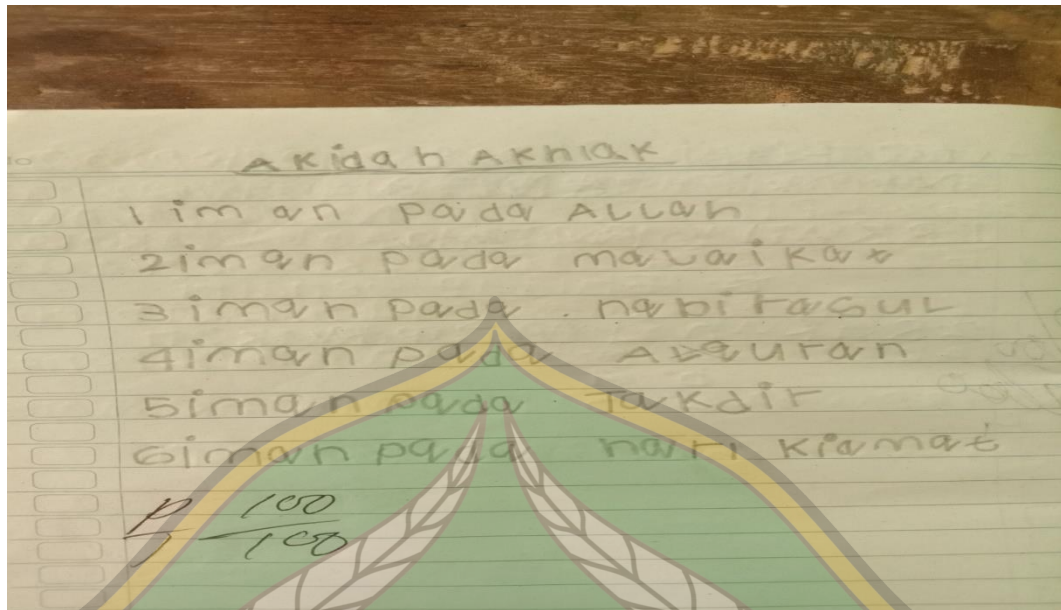 AKidah AKhlak
1 iman pada ALLah
2 iman pada malaikat
3 iman pada nabi rasul
4 iman pada ALquran
5 iman pada Takdir
6 iman pada hari kiamat
100
100